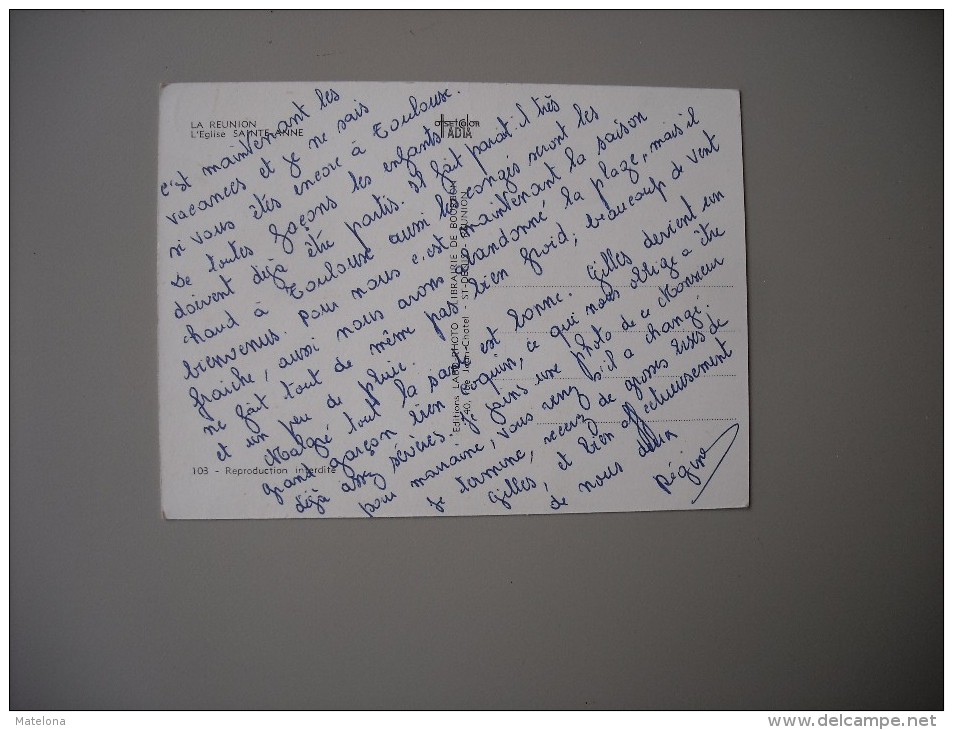 LA REUNION
L'Eglise SAINTE-ANNE
offset-color
IADTA
c'est maintenant les
vacances et je ne sais
si vous êtes encore à Toulouse.
De toutes façons les enfants
doivent déjà être partis. Il fait parait-il très
chaud à Toulouse aussi les congés seront les
bienvenus. Pour nous c'est maintenant la saison
fraiche, aussi nous avons abandonné la plage, mais il
ne fait tout de même pas bien froid; beaucoup de vent
et un peu de pluie.
Malgré tout la santé est bonne. Gilles devient un
grand garçon bien coquin, ce qui nous oblige à être
déjà assez sévères. Je joins une photo de ce Monsieur
pour marraine, vous verrez s'il a changé.
Je termine, recevez de grosses bises de
Gilles, et bien affectueusement
de nous deux
Régine
Editions LABO-PHOTO - LIBRAIRIE DE BOURBON
140, Rue Jean-Chatel - ST-DENIS - REUNION
103 - Reproduction interdite
Matelona
www.delcampe.net